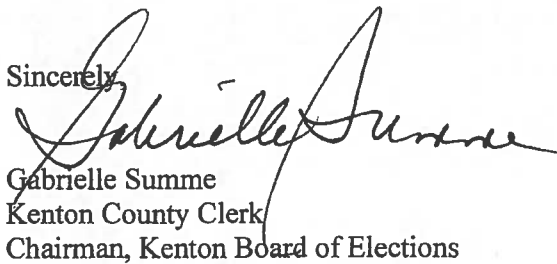 Sincerely,
Gabrielle Summe
Gabrielle Summe
Kenton County Clerk
Chairman, Kenton Board of Elections